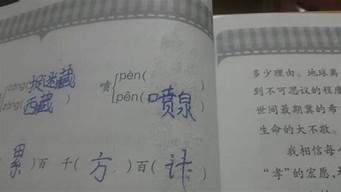 捉迷藏) pèn(
喷
西藏) pēn(喷泉
累)百 千(方)百(计
多少理由,地球离
到不可思议的程度
世间最期冀的希
生命的大不敬。
我相信每
“孝”的宏愿,